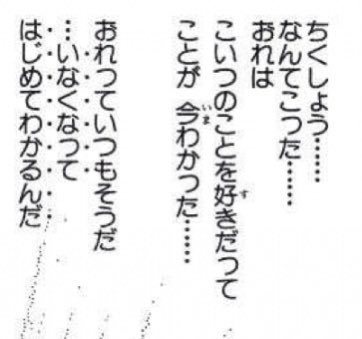 ちくしょう……
なんてこった……
おれは
こいつのことを好きだって
ことが 今わかった……
おれっていつもそうだ
…いなくなって
はじめてわかるんだ